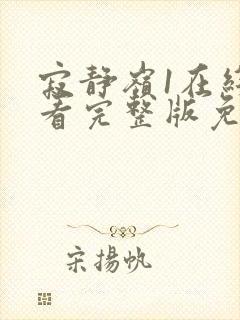 寂静嶺1在
看完整版免
宋揚帆